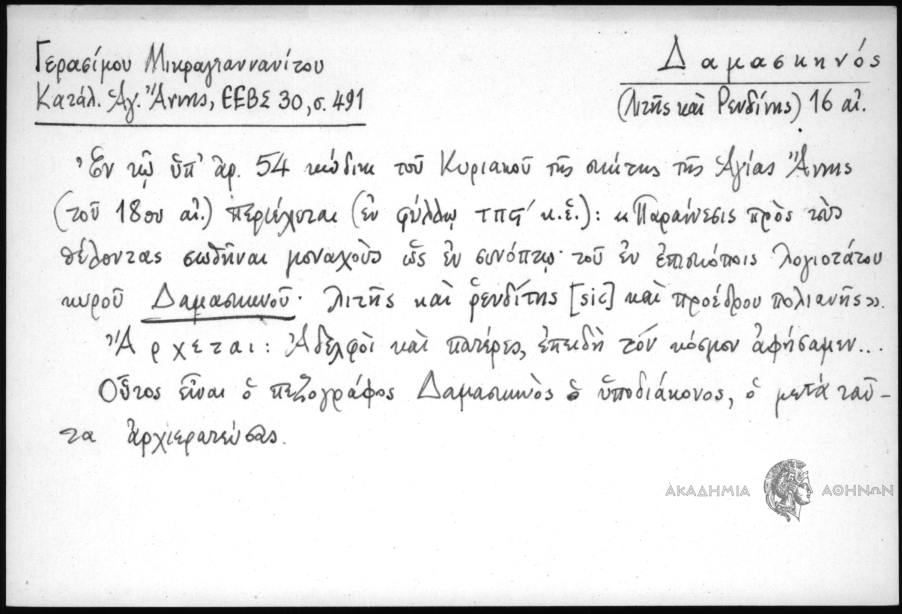 Γερασίμου Μικραγιαννανίτου
Κατάλ. Ἁγ. Ἄννης, ΕΕΒΣ 30, σ. 491
Δαμασκηνός
(Λιτῆς καὶ Ρενδίνης) 16 αἰ.
Ἐν τῷ ὑπ' ἀρ. 54 κώδικι τοῦ Κυριακοῦ τῆς σκήτης τῆς Ἁγίας Ἄννης
(τοῦ 18ου αἰ.) περιέχεται (ἐν φύλλῳ τπϛ' κ.ἑ.): «Παραίνεσις πρὸς τοὺς
θέλοντας σωθῆναι μοναχοὺς ὡς ἐν συνόπτῳ· τοῦ ἐν ἐπισκόποις λογιοτάτου
κυροῦ Δαμασκηνοῦ· λιτῆς καὶ ῥενδίτης [sic] καὶ προέδρου πολιανῆς».
Ἄρχεται: Ἀδελφοὶ καὶ πατέρες, ἐπειδὴ τὸν κόσμον ἀφήσαμεν...
Οὗτος εἶναι ὁ πεζογράφος Δαμασκηνὸς ὁ ὑποδιάκονος, ὁ μετὰ ταῦ-
τα ἀρχιερατεύσας.
ΑΚΑΔΗΜΙΑ ΑΘΗΝΩΝ